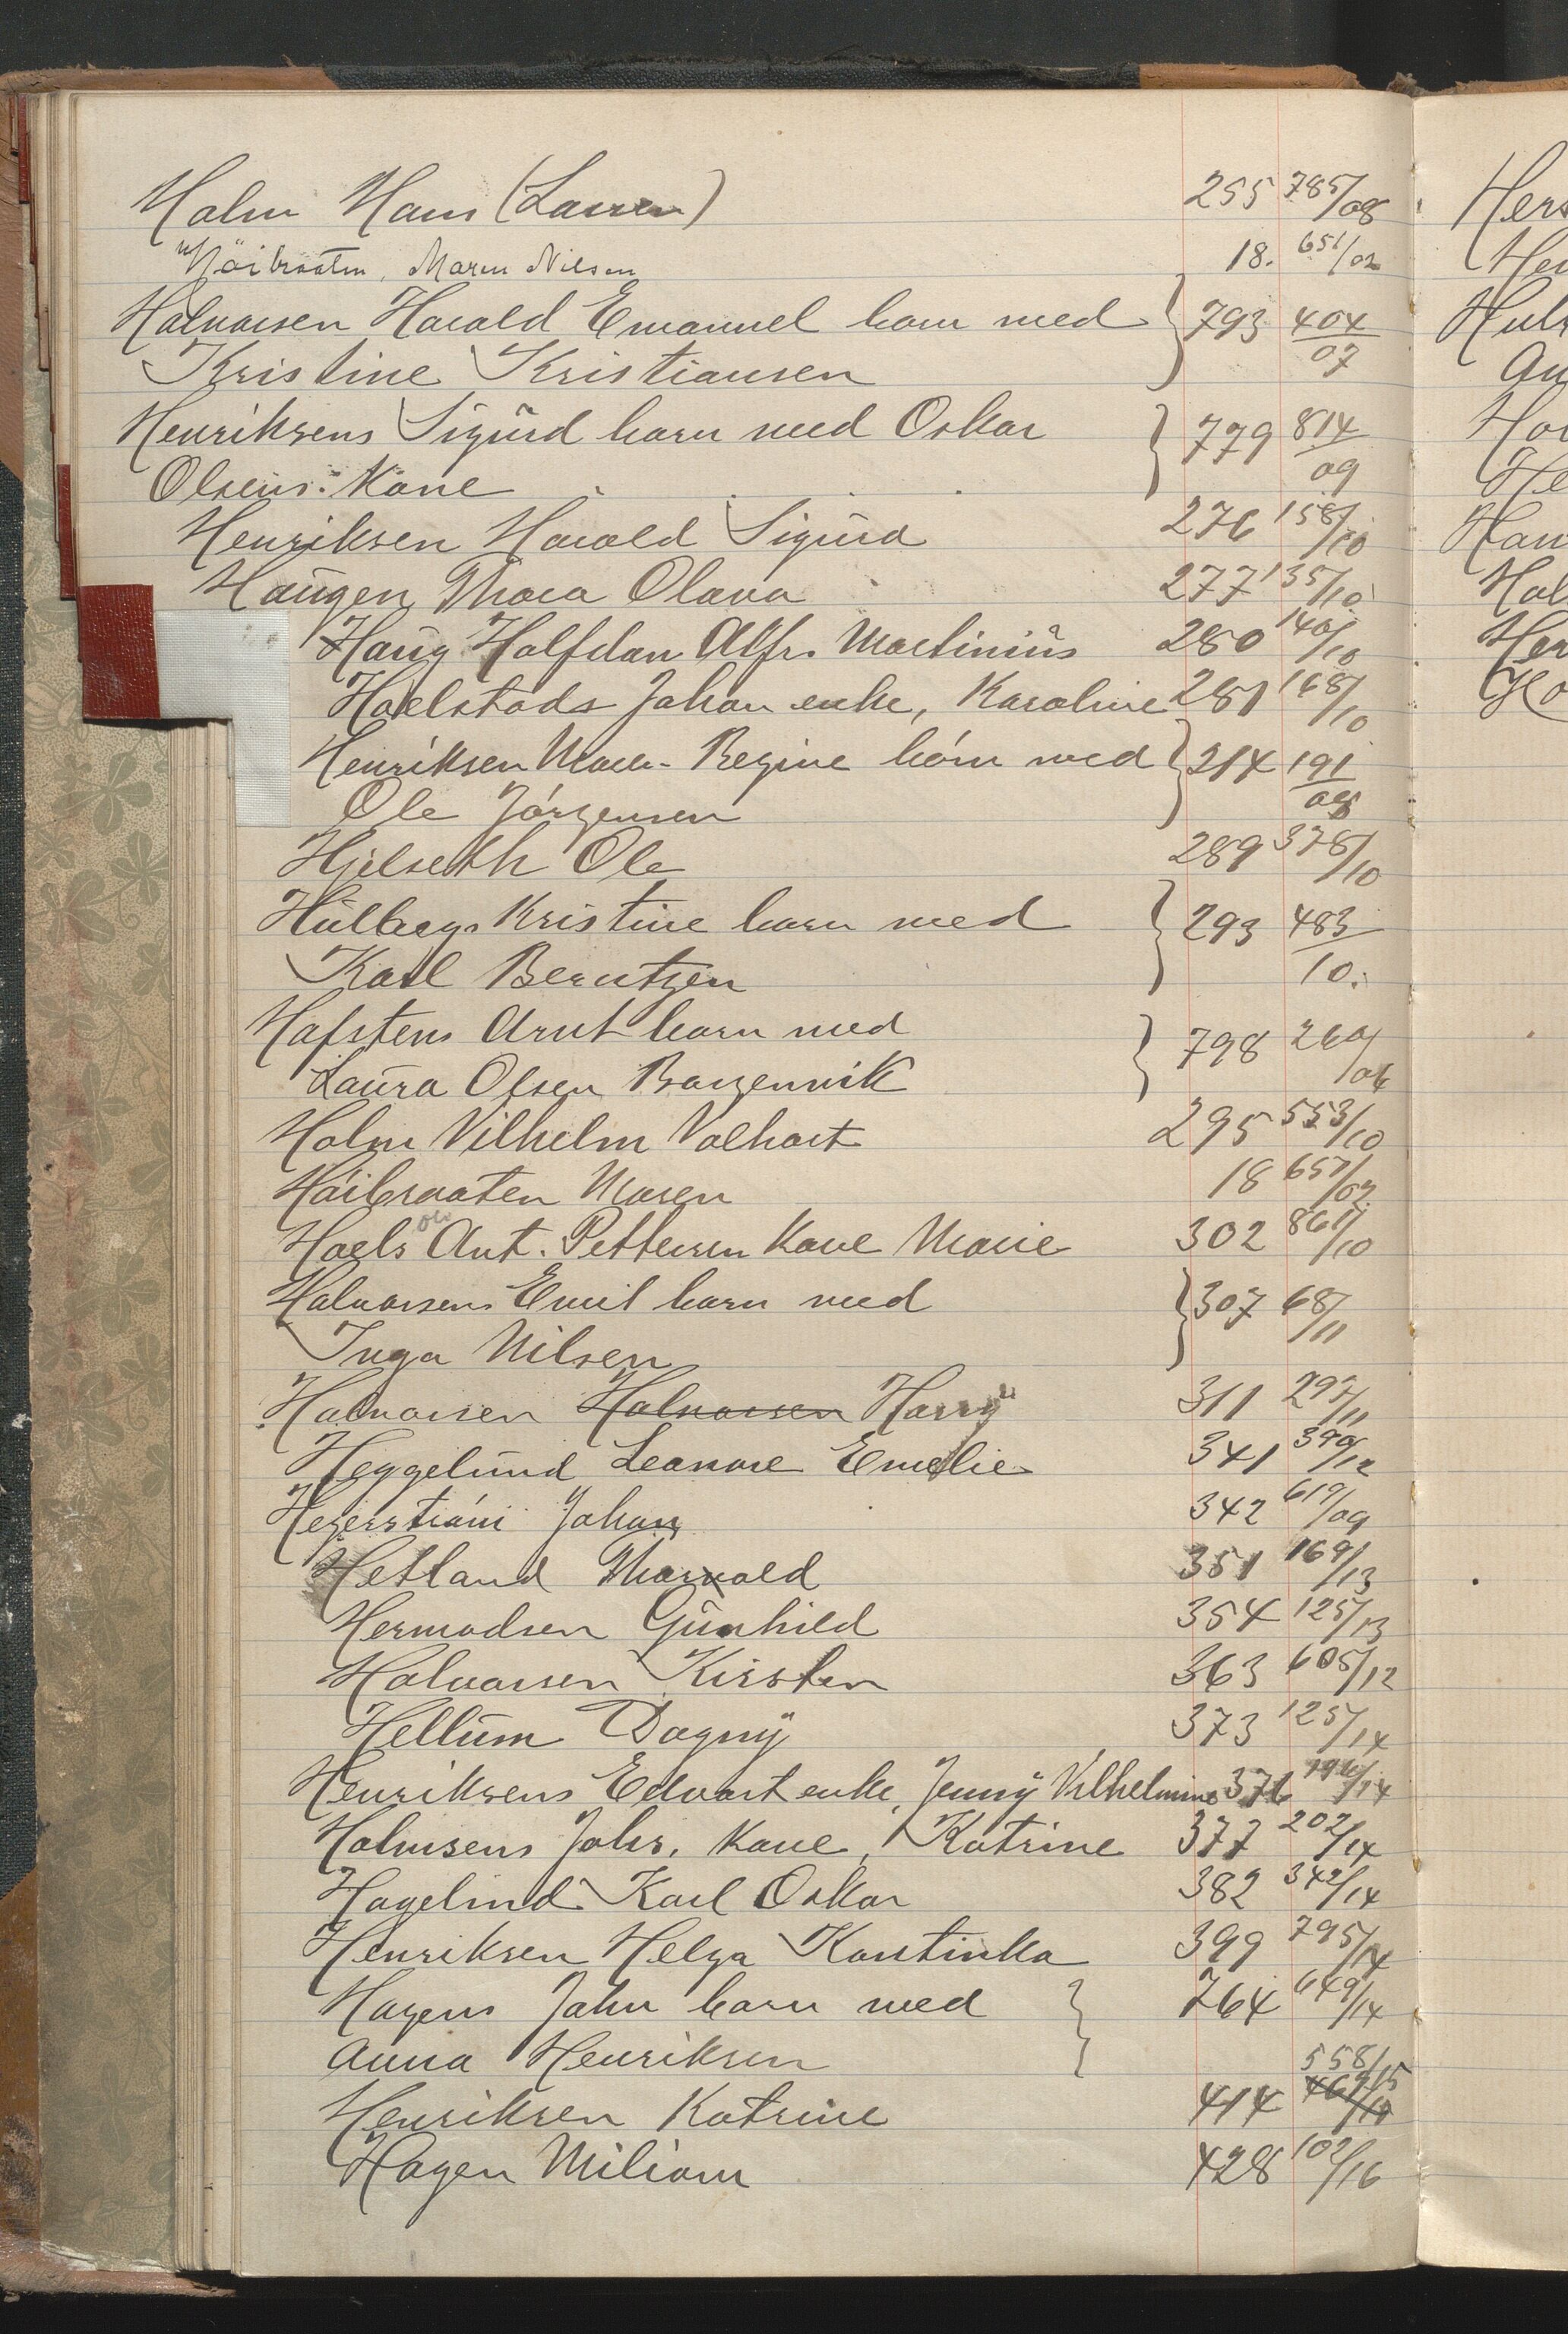 Holm Hans (Larsen) 255 785/08
Höibraaten, Maren Nilsen 18. 651/02
Halvorsen Harald Emanuel barn med } 793 404/07
Kristine Kristiansen
Henriksens Sigurd barn med Oskar } 779 814/09
Olsens Kone
Henriksen Harald Sigurd 276 158/10
Haugen Thora Olava 277 135/10
Haug Halfdan Alfr. Martinius 280 140/10
Hoelstads Johan enke, Karoline 281 168/10
Henriksen Maren Regine barn med } 214 191/08
Ole Jörgensen
Hjelseth Ole 289 378/10
Hülbergs Kristine barn med } 293 483/10.
Karl Berntzen
Hafstens Arnt barn med } 798 260/06
Laura Olsen Borgenvik
Holm Vilhelm Valhart 295 553/10
Höibraaten Maren 18 651/02
Hoels Ant. Pettersen Kone Marie 302 861/10
Halvorsens Emil barn med } 307 68/11
Inga Nilsen
Halvorsen Halvorsen Harry 311 295/11
Heggelund Leonore Emelie 341 390/12
Johan 342 619/09
Hetland Thorvald 351 169/13
Hermodsen Gunhild 354 125/13
Halvorsen Kirsten 363 605/12
Hellum Dagny 373 125/14
Henriksens Edvart enke, Jenny Vilhelmine 376 /14
Holmsens Johs. Kone, Katrine 377 202/14
Hagelind Karl Oskar 382 342/14
Henriksen Helga Konstinka 399 795/14
Hagens John barn med } 764 649/14
Anna Henriksen
558/15
Henriksen Katrine 414
Hagen Miliam 428 102/16
Hers
Hen
Hulb
An
Ho
He
Han
Hal
Hen
Ho